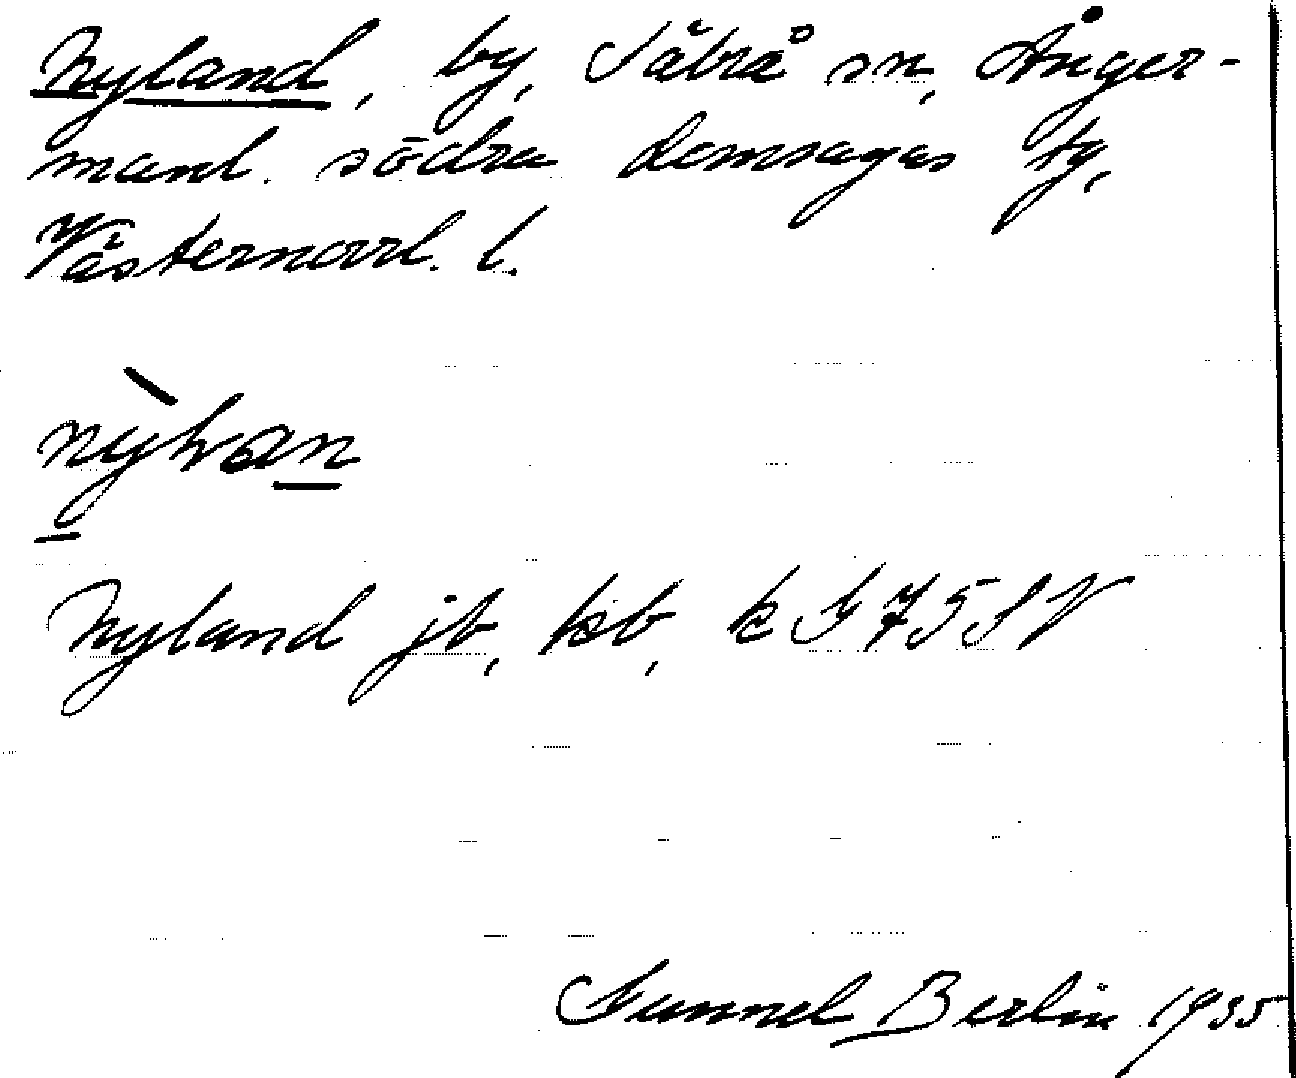 Nyland, by, Säbrå sn, Ånger-
manl. södra domsagas tg,
Västernorrl. l.
Nyland jb, kb, k G 75 SV
Gunnel Berlin 1935